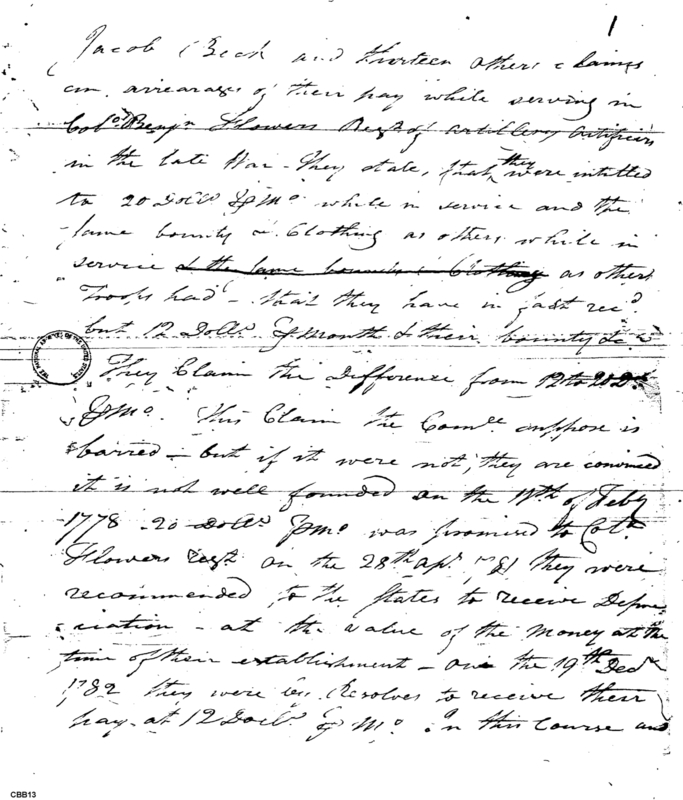 1
Jacob Beck and thirteen others claims
an arrearages of their pay while serving in
Colo. Benjn Flowers Regt of artillery artificers
in the late War - They state, that they were intitled
to 20 Dolls. ⅌ Mo. while in service and the
same bounty & Clothing as others while in
service & the same bounty & Clothing as others
Troops had - that they have in fact recd.
but 12 Dolls. ⅌ Month & their bounty &c
They Claim the Difference from 12 to 20 Ds
⅌ Mo. This Claim the Comee suppose is
barred - but if it were not, they are convinced
it is not well founded on the 11th of Feby
1778 - 20 Dolls. ⅌ Mo. was promised to Colo.
Flowers regt on the 28th apl. 1781 they were
recommended to the States to receive Depre
ciation - at the value of the Money at the
time of their establishment - on the 19th Decr
1782 they were by Resolves to receive their
pay at 12 Dolls. ⅌ Mo. In this Course and
THE NATIONAL ARCHIVES OF THE UNITED STATES
CBB13